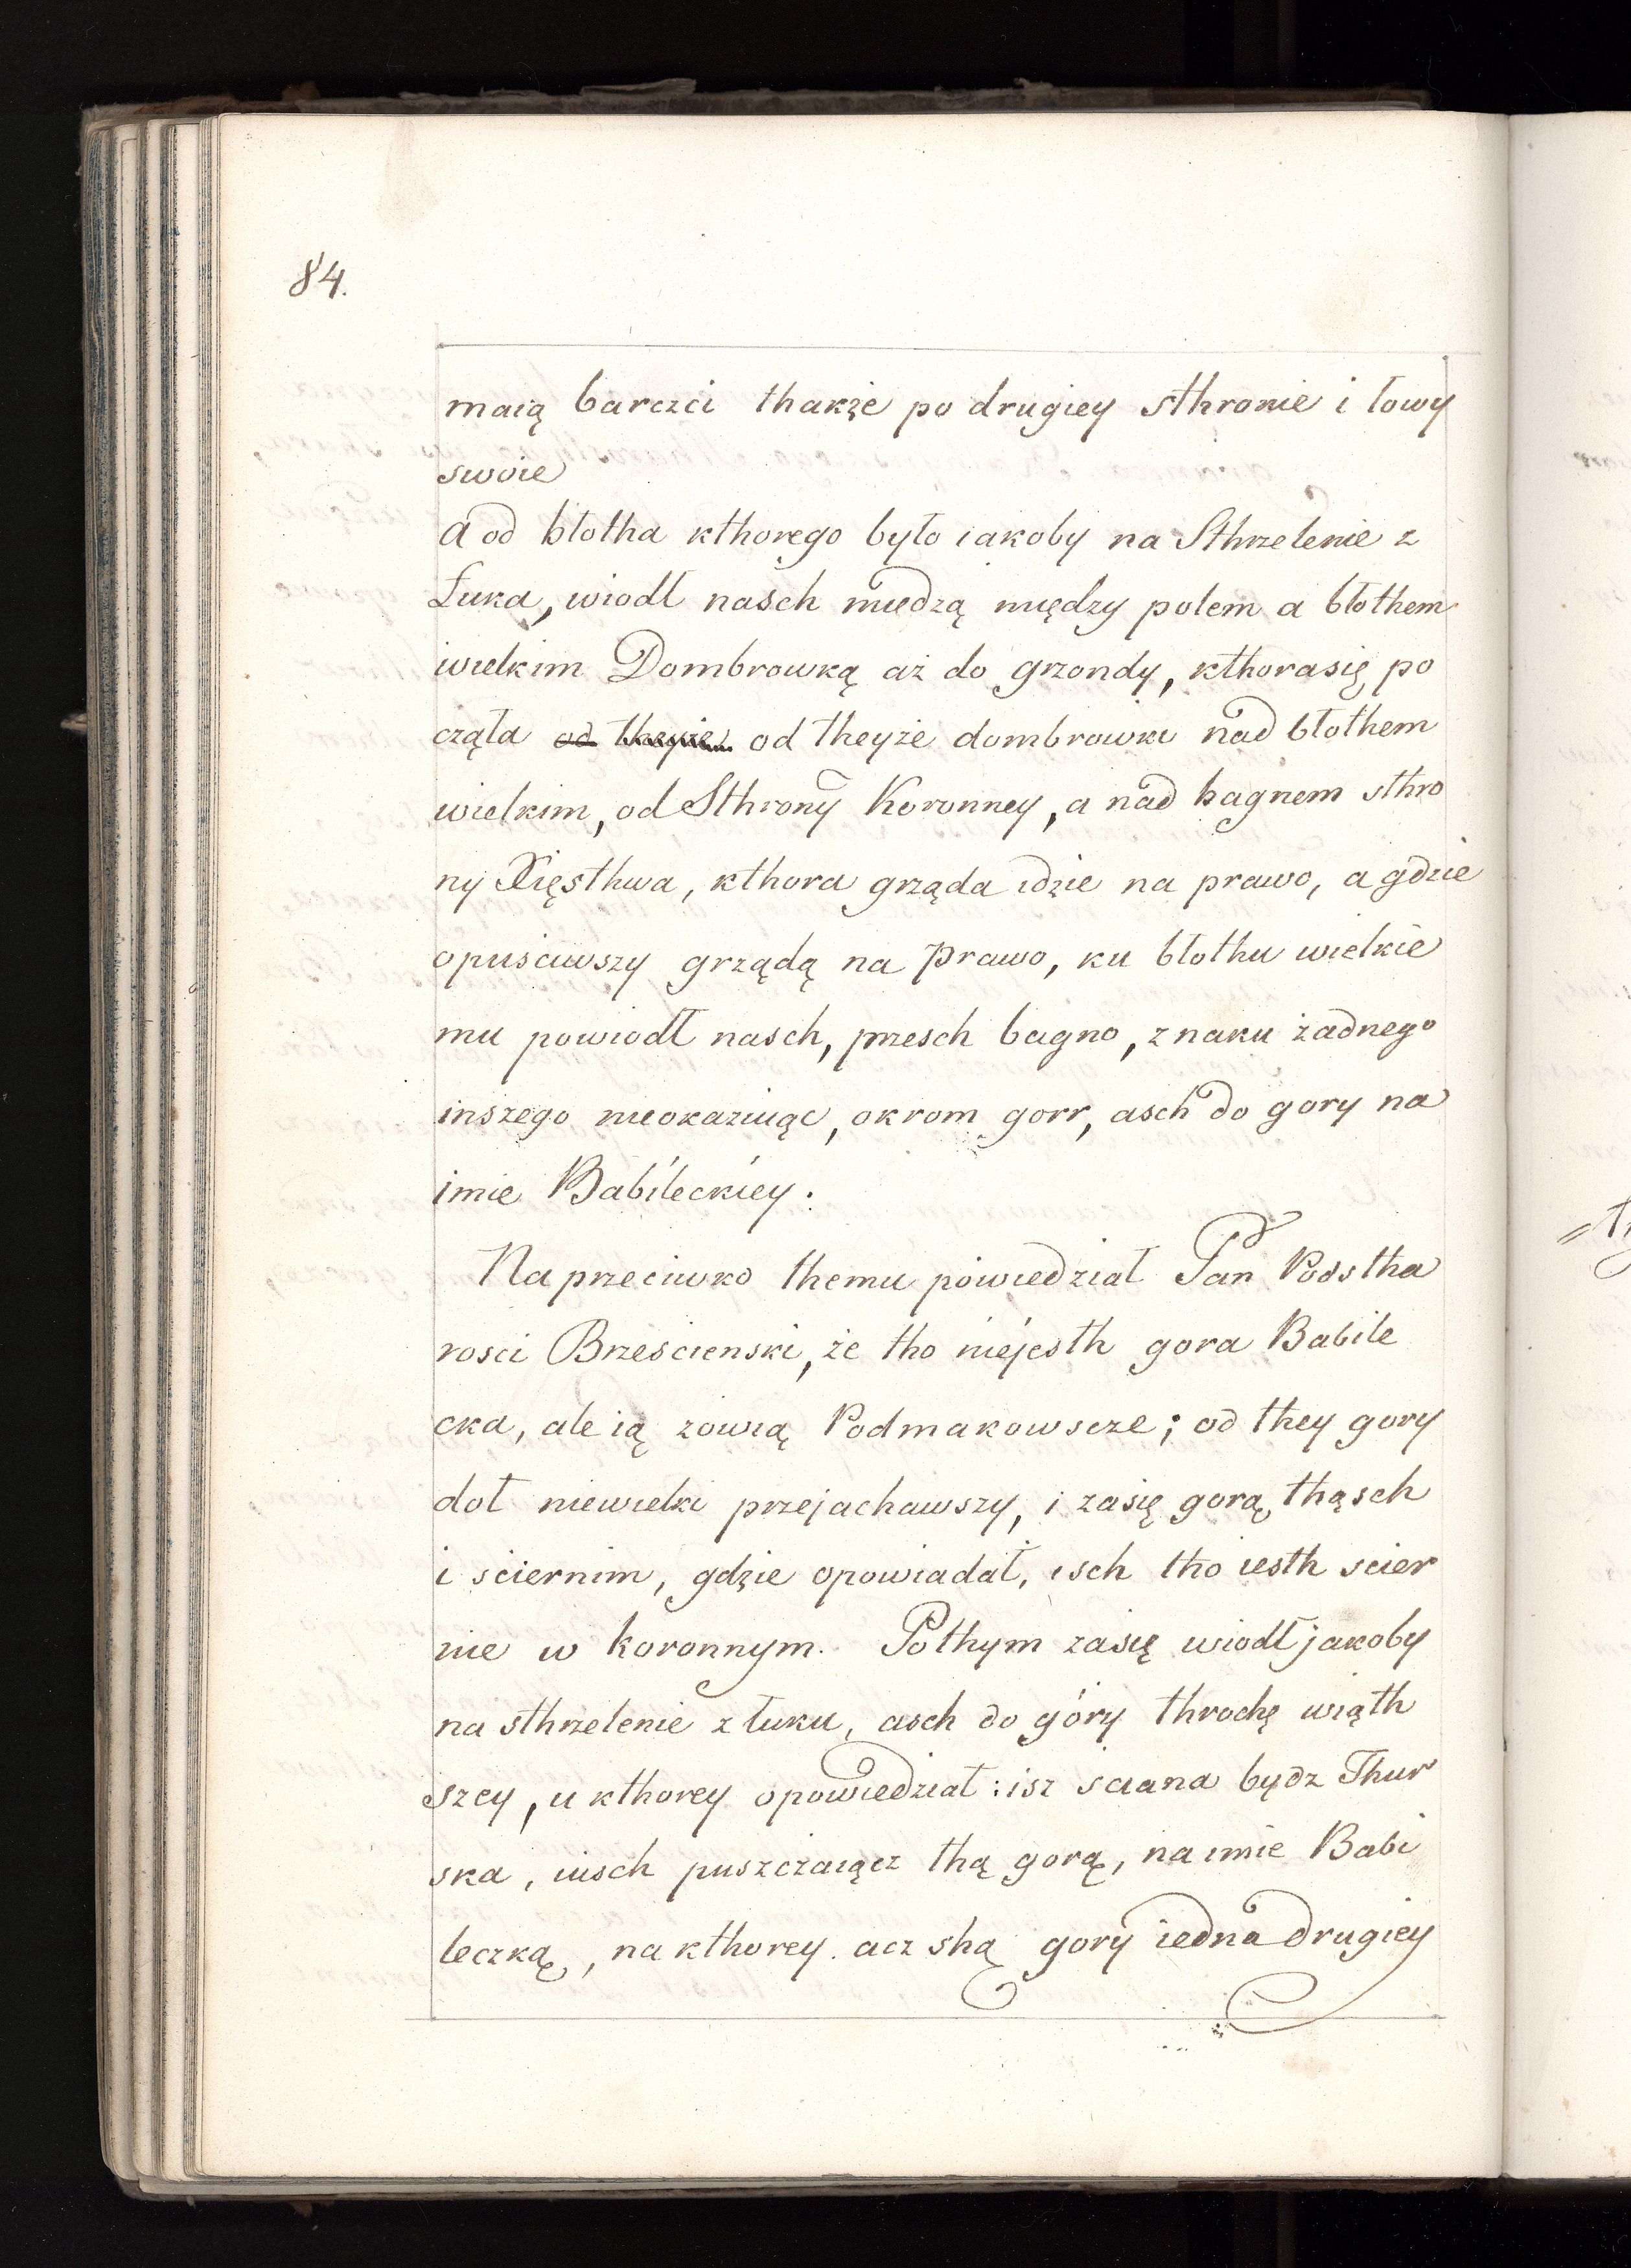 84.
maią barczci thakże po drugiey sthronie i łowy
swoie
a od błotha kthorego było iakoby na Sthrzelenie z
Łuka, wiodł nasch miedzą między polem a błothem
wielkim Dombrowką aż do grzondy, kthorasię po
cząła od theyże od theyże dombrowki nad błothem
wielkim, od Sthrony Koronney, a nad bagnem sthro
ny Xięsthwa, kthora grząda idzie na prawo, a gdzie
opusciwszy grządą na prawo, ku błothu wielkie
mu powiodł nasch, przesch bagno, znaku żadnego
inszego nieokaziuąc, okrom gorr, asch do gory na
imie Babileckiey.
Naprzeciwko themu powiedział Pan Podstha
rosci Brzescienski, że tho niejesth gora Babile
cka, ale ią zowią Podmakowscze; od they gory
doł niewielki przejachawszy, i zasię gorą thąsch
i sciernim, gdzie opowiadał, isch tho iesth scier
nie w koronnym. Pothym zasię wiodł jakoby
na sthrzelenie z łuku, asch do góry throchę wiąth
szey, u kthorey opowiedział: isz sciana bydz Thur
ska, iusch puszczaiącz thą gorą, na imie Babi
leczką, na kthorey acz shą gory iedna drugiey